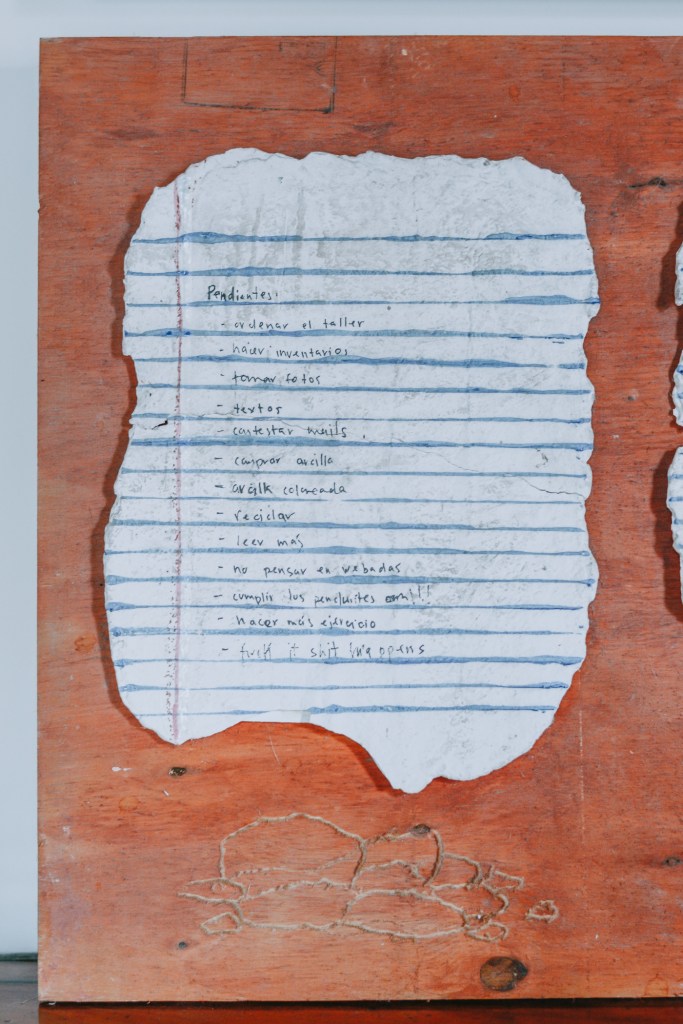 Pendientes:
- ordenar el taller
- hacer inventarios
- tomar fotos
- textos
- contestar mails
- comprar arcilla
- arcilla coloreada
- reciclar
- leer más
- no pensar en webadas
- cumplir los pendientes !!!
- hacer más ejercicio
- fuck it shit